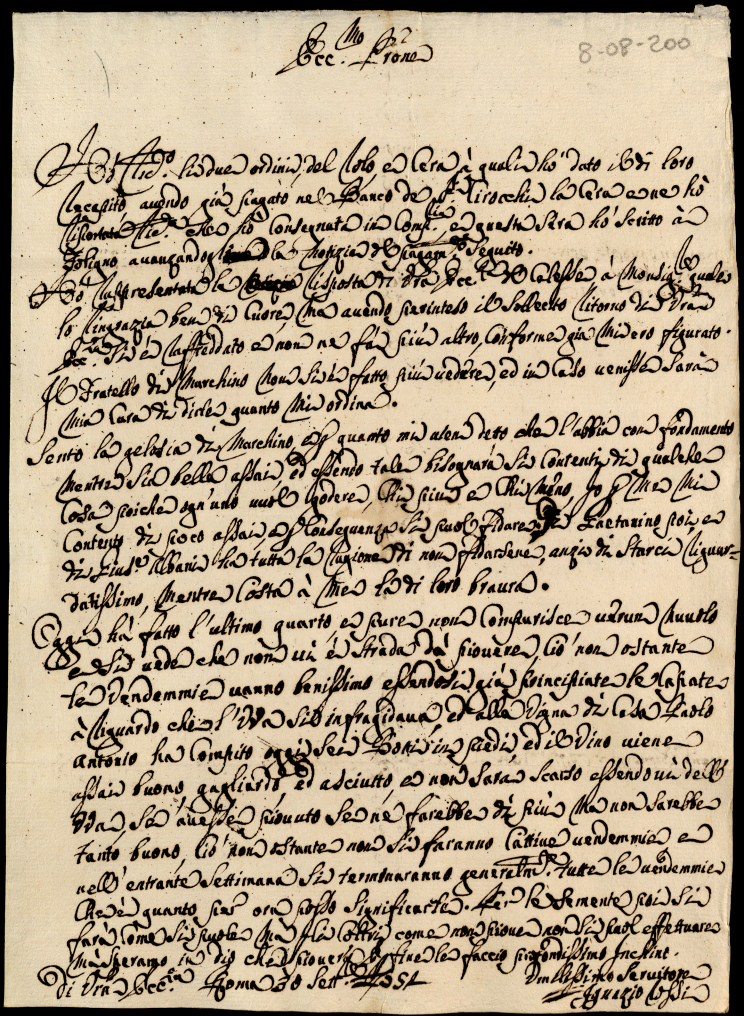 8-08-200
Ecc.mo Prone
Hò rice.o li due ordini, del Polo, e Cera à quali hò dato il di loro
recapito avendo già pagato nel Banco de Cirocchi la Cera e ne hò
riportata che hò consegnata in Comp.ia, e questa sera hò scritto à
Foligno avanzandogli la notizia del pagam.to seguito.
Hò rappresentata la risposta di Vra Ecc.za del Calesse à Monsig.re quale
lo ringrazia ben di cuore, ma avendo preinteso il sollecito ritorno di Vra
Ecc.za si è raffreddato e non ne fà più altro, conforme già mi ero figurato.
Il Fratello di Marchino non si è fatto più vedere, ed in caso venisse sarà
mia cura di dirle quanto mi ordina.
Sento la gelosia di Marchino, e p quanto mi vien detto che l'abbia con fondamento
mentre sia bella assai, ed essendo tale bisognarà si contenti di qualche
cosa poiche ogn'uno vuol godere, chi più e chi meno, io p me mi
contento di poco assai e p conseguenza si può fidare. Gaetanino poi e
di Gius.e Albani ha tutta la ragione di non fidarsene, anzi di starci riguar-
datissimo, mentre costa à me la di loro bravura.
Oggi hà fatto l'ultimo quarto e pure non comparisce verun nuvolo
e si vede che non vi è strada dà piovere, ciò non ostante
le vendemmie vanno benissimo essendosi già principiate le
à riguardo che l'Uva si infragidava ed alla Vigna di Casa Paolo
Antonio ha compito oggi sei Botti in piedi, ed il Vino viene
assai buono, gagliardo, ed asciutto, e non sarà scarso essendovi dell'
Uva, se avesse piovuto se ne farebbe di più ma non sarebbe
tanto buono, ciò non ostante non si faranno cattive vendemmie e
nell'entrante settimana si termonaranno generalm.te tutte le vendemmie
che è quanto per ora posso significarle. Per le semente poi si
farà come si puole ma come non piove non si può effettuare
ma speramo in dio che pioverà e p fine le faccio profondissimo Inchino.
Di Vra Ecc.za Roma 30 Sett.re 1751
Umilissimo Servitore
Ignazio Rossi